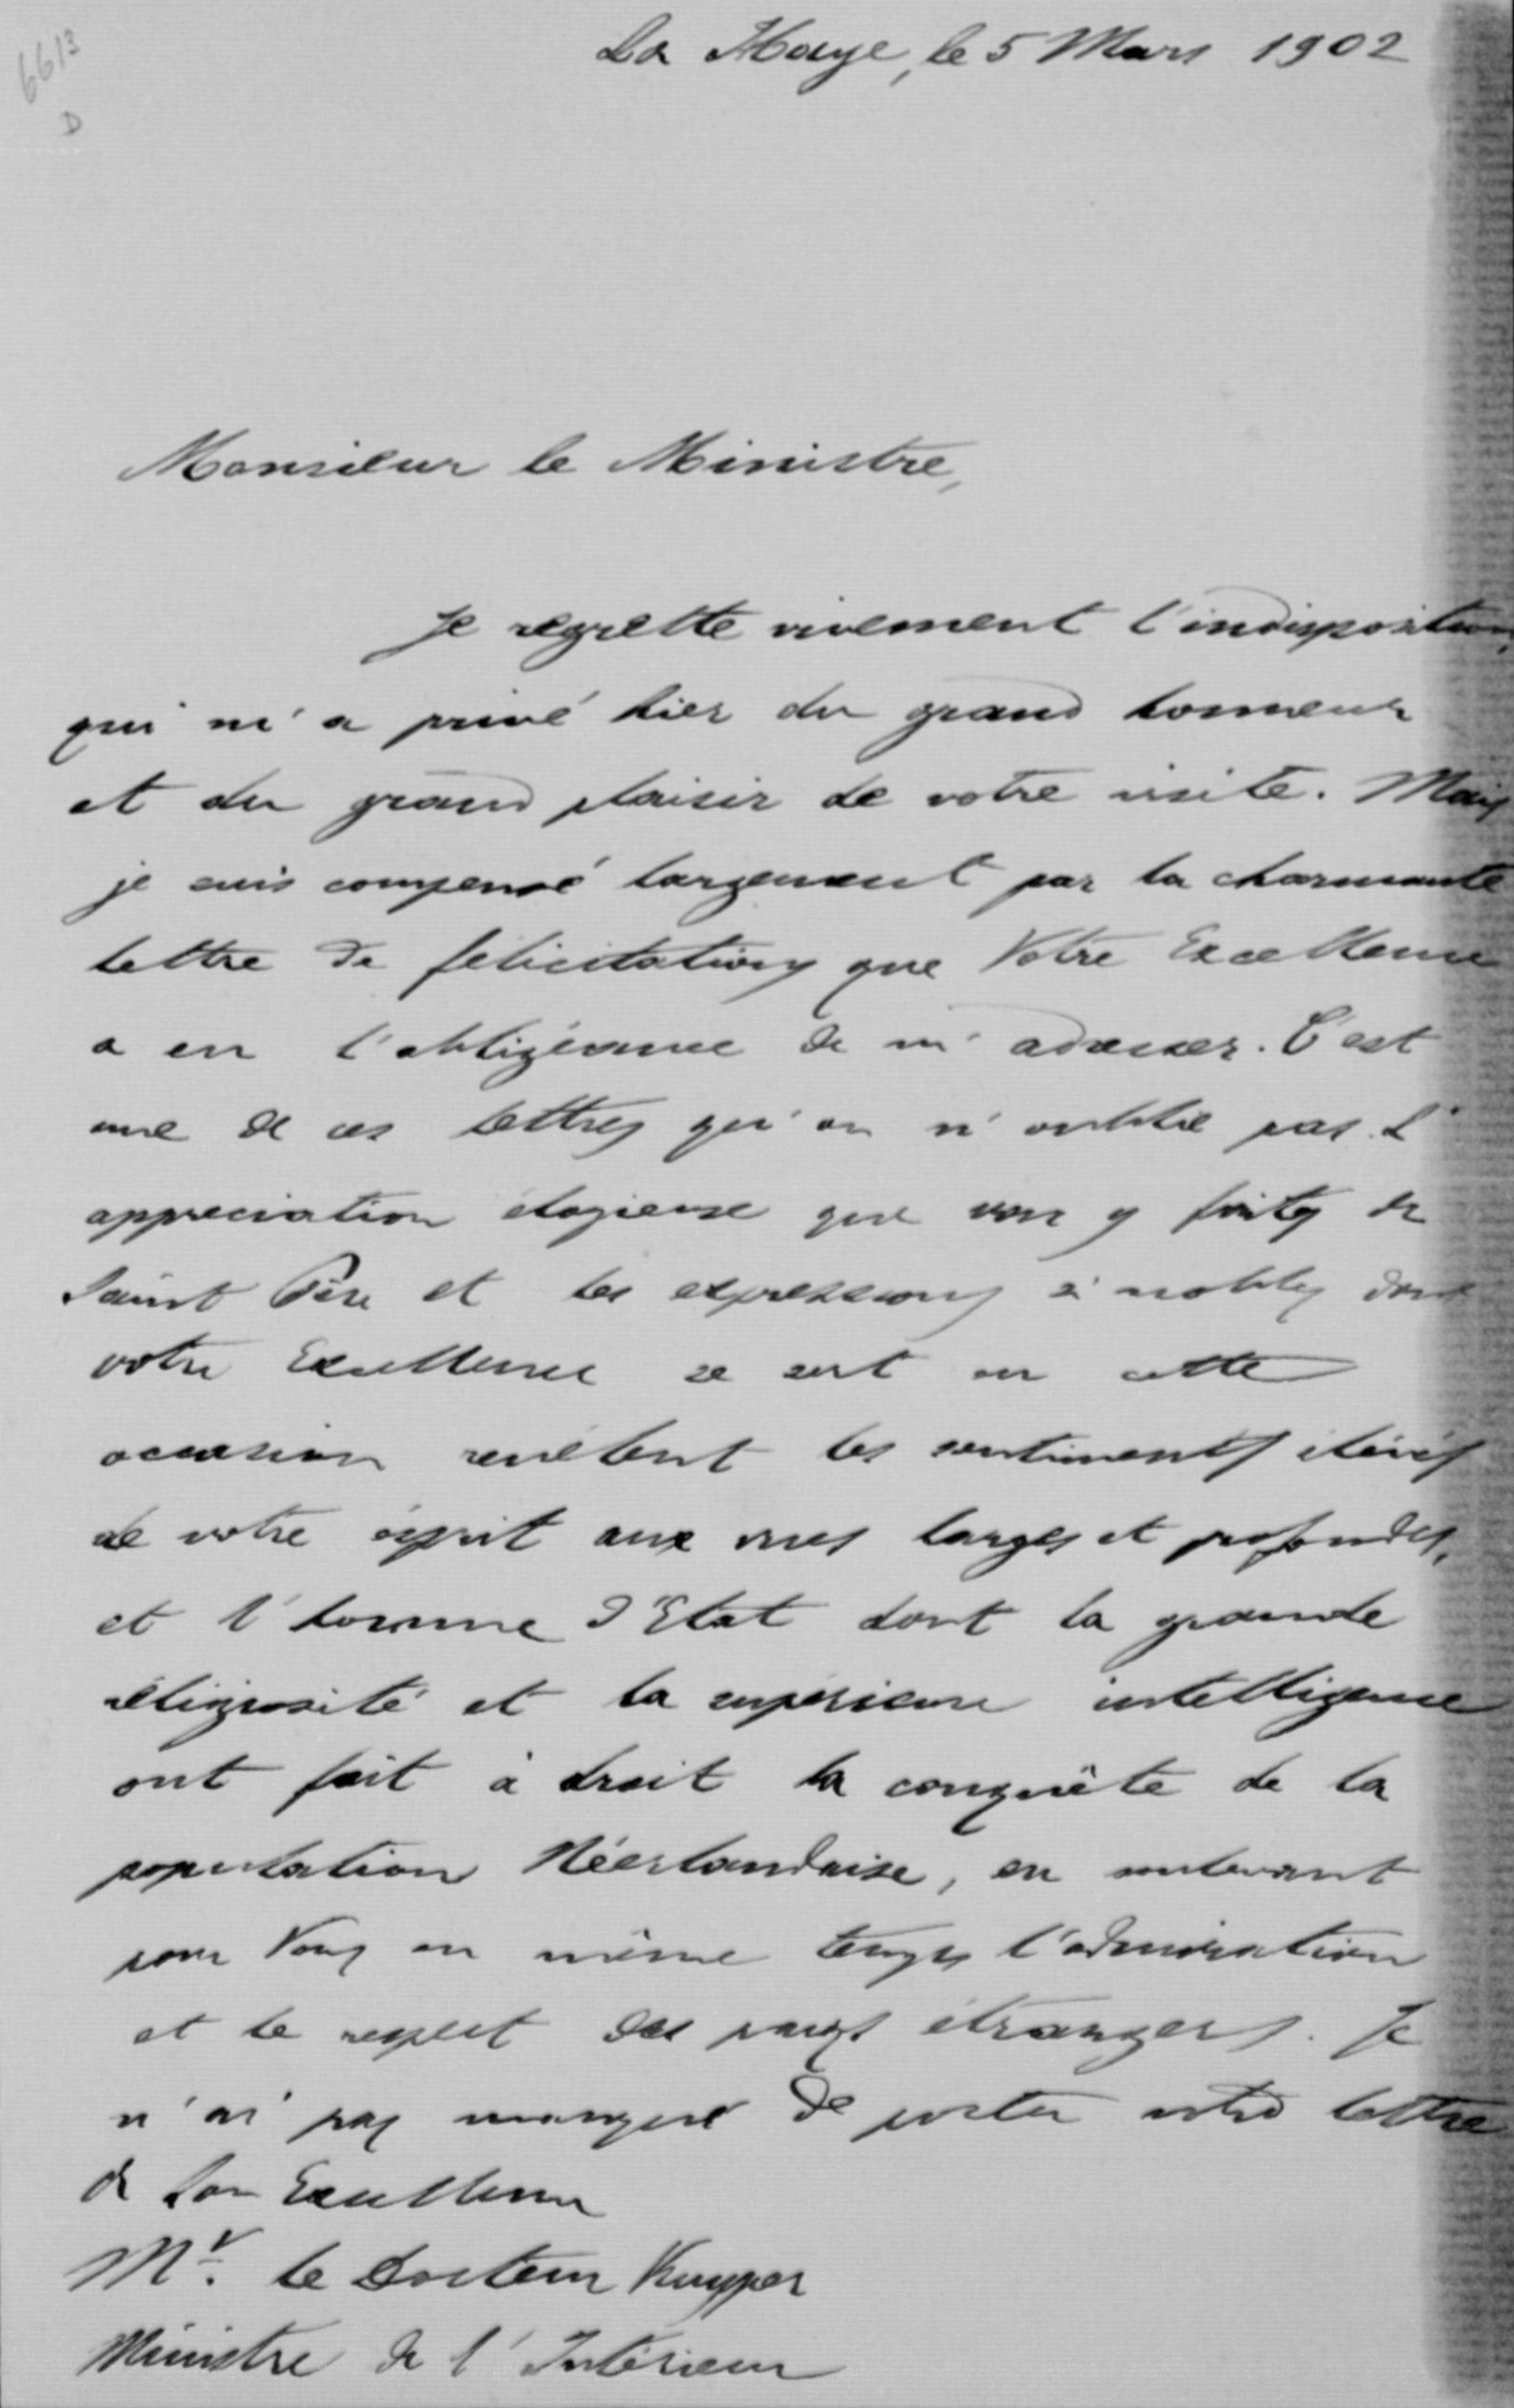 6613
D
La Haye, le 5 Mars 1902
Monsieur le Ministre,
Je regrette vivement l'indisposition
qui m'a privé hier du grand honneur
et du grand plaisir de votre visite. Mais
je suis compensé largement par la charmante
lettre de félicitations que Votre Excellence
a eu l'obligéance de m'adresser. C'est
une de ces lettres qu'on n'oublie pas. L'
appreciation élogieuse que vous y faites du
Saint Père et les expressions si nobles dont
votre Excellence se sert en cette
occasion revèlent les sentiments élevés
de votre ésprit aux vues larges et profondes,
et l'homme d'Etat dont la grande
réligiosité et la supérieure intelligence
ont fait à droit la conquête de la
population Néerlandaise, en soulevant
pour Vous en même temps l'admiration
et le respect des pays étrangers. Je
n'ai pas manqué de porter votre lettre
à Son Excellence
Mr. le Docteur Kuyper
Ministre de l'Intérieur